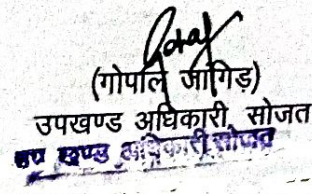 (गोपाल जांगिड़)
उपखण्ड अधिकारी, सोजत
उप खण्ड अधिकारी सोजत